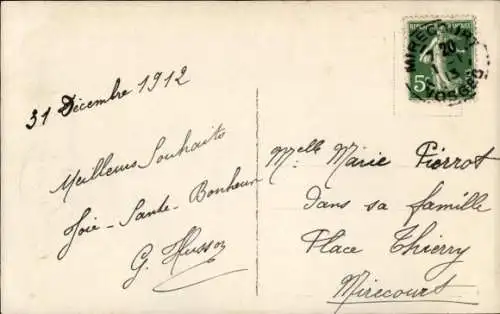 31 Décembre 1912
Meilleurs Souhaits
Joie - Santé - Bonheur
G. Husson
MIRECOURT
20
13
VOSGES
5c
Melle Marie Pierrot
dans sa famille
Place Thierry
Mirecourt